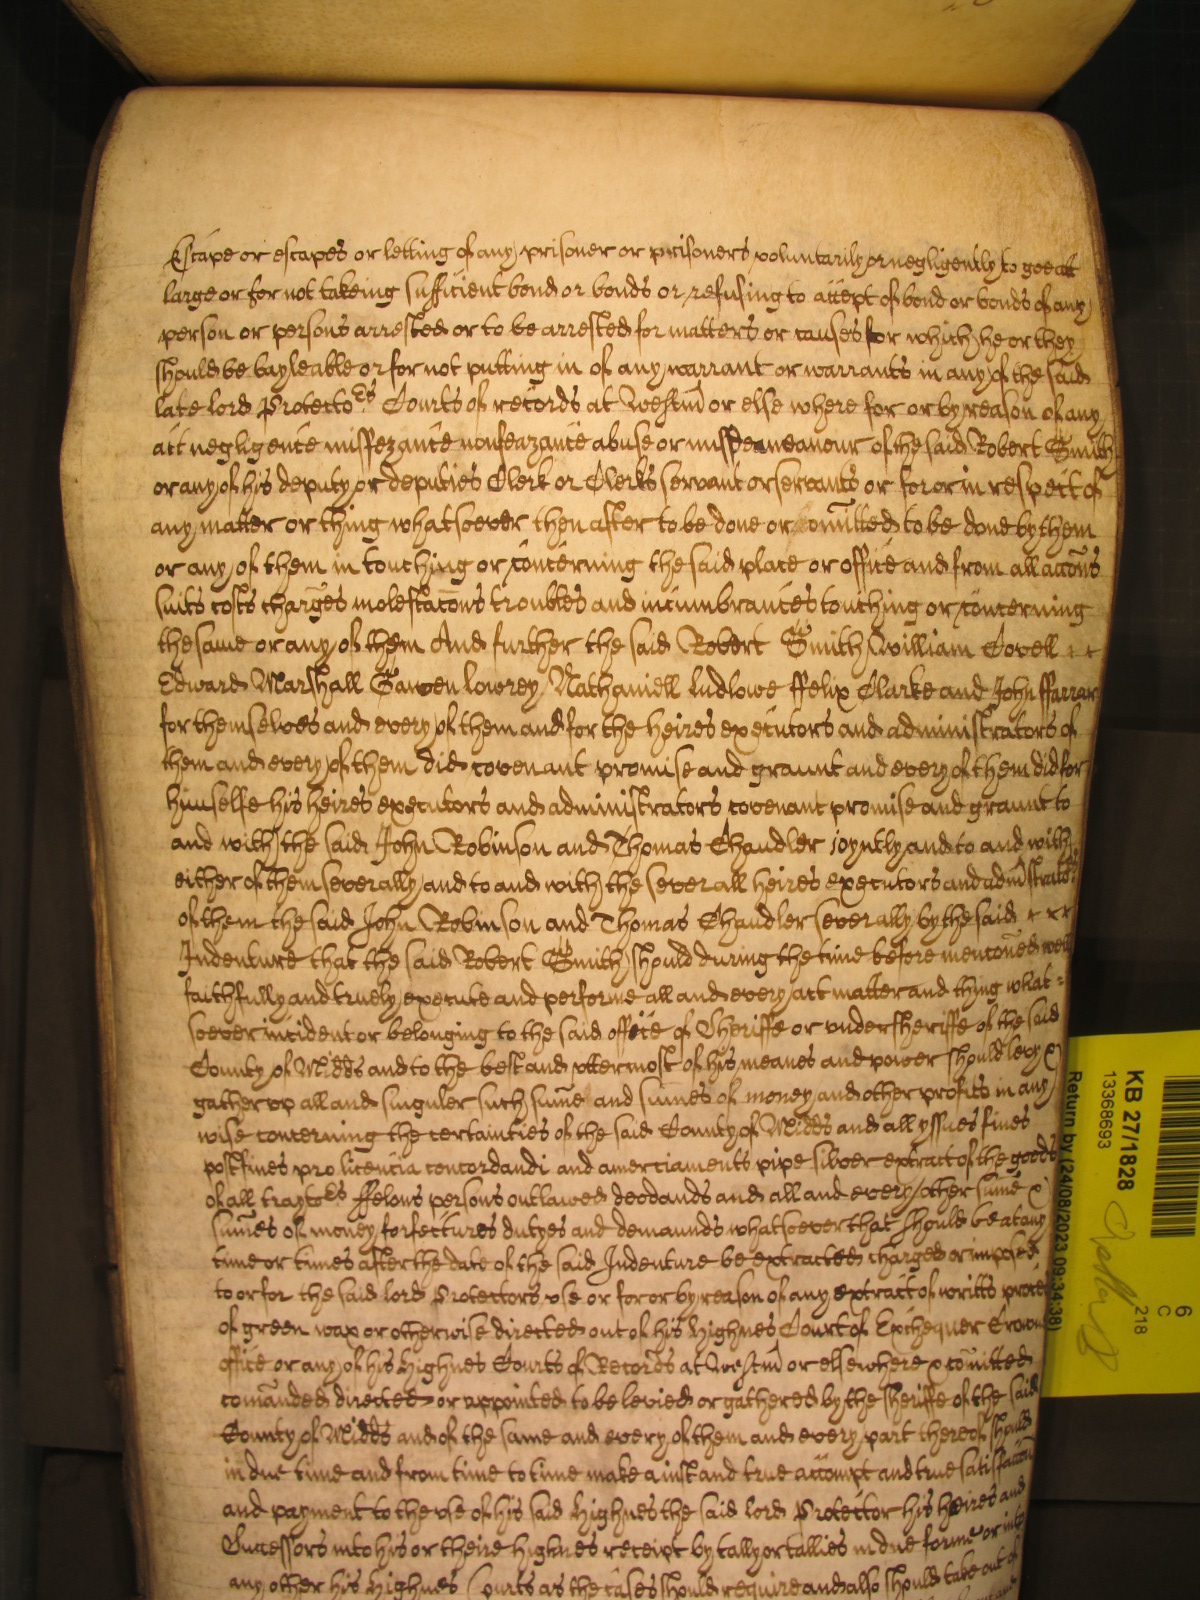 Escape or escapes or letting of any prisoner or prisoners voluntarily or negligently to goe att
large or for not takeing sufficient bond or bonds or refusing to accept of bond or bonds of any
person or persons arrested or to be arrested for matters or causes for which he or they
should be bayleable or for not putting in of any warrant or warrants in any of the said
late lord Protectors Courts of records at Westm or else where for or by reason of any
act negligence misfezance nonfeazance abuse or misdemeanour of the said Robert Smith
or any of his deputy or deputies Clerk or Clerks servant or servants or for or in respect of
any matter or thing whatsoever then after to be done or comitted to be done by them
or any of them in touching or concerning the said place or office and from all accons
suits costs charges molestacons troubles and incumbrances touching or concerning
the same or any of them And further the said Robert Smith William Covell
Edward Marshall Gawen Lowrey Nathaniell Ludlowe ffelix Clarke and John ffarrar
for themselves and every of them and for the heires executors and administrators of
them and every of them did covenant promise and graunt and every of them did for
himselfe his heires executors and administrators covenant promise and graunt to
and with the said John Robinson and Thomas Chandler joyntly and to and with
either of them severally and to and with the severall heires executors and administrators
of them the said John Robinson and Thomas Chandler severally by the said
Indenture that the said Robert Smith should during the time before menconed well
faithfully and truely execute and performe all and every act matter and thing what=
soever incident or belonging to the said office of Sheriffe or undersheriffe of the said
County of Midds and to the best and uttermost of his meanes and power should levy &
gather up all and singuler such sume and sumes of money and other profits in any
wise concerning the certainties of the said County of Midds and all yssues fines
postfines pro licencia concordandi and amerciaments pipe silver extract of the goods
of all traytors ffelons persons outlawed deodands and all and every other sume &
sumes of money forfectures dutyes and demaunds whatsoever that should be at any
time or times after the date of the said Indenture be extracted charged or imposed
to or for the said lord Protectors use or for or by reason of any extract of writts
of green wax or otherwise directed out of his Highnes Court of Exchequer Crown
office or any of his Highnes Courts of Records at Westm or elsewhere & comitted
comanded directed or appointed to be levied or gathered by the Sheriffe of the said
County of Midds and of the same and every of them and every part thereof should
in due time and from time to time make a just and true accompt and true satisfaccon
and payment to the use of his said Highnes the said lord Protector his heires and
Successors into his or theire Highnes receipt by tally or tallies in due forme or into
any other his Highnes Courts as the cases should require and also should take out of
KB 27/1828
13368693
Return by (24/08/2023 09:34:38)
218
6
C